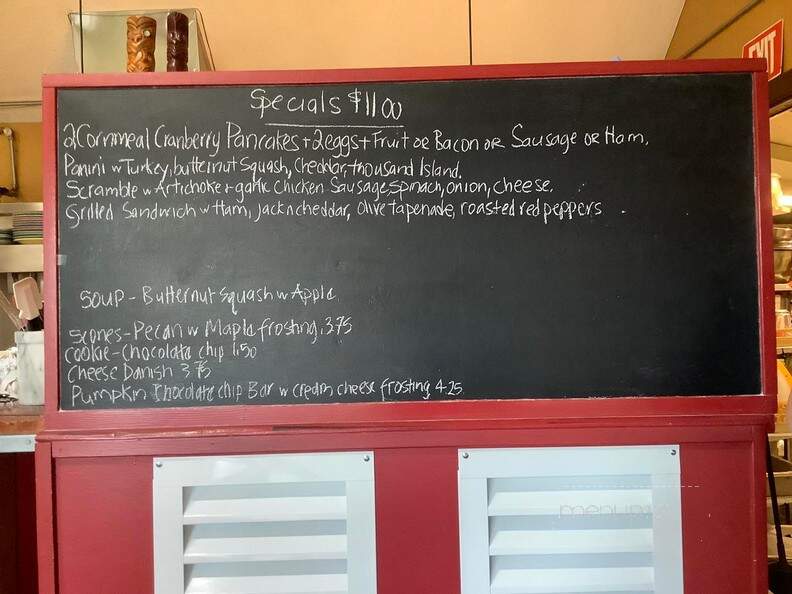 EXIT
Specials $11.00
2 Cornmeal Cranberry Pancakes + 2 eggs + Fruit or Bacon or Sausage or Ham.
Panini w Turkey, butternut Squash, Cheddar, thousand Island.
Scramble w Artichoke + garlic Chicken Sausage, spinach, onion, cheese.
Grilled Sandwich w Ham, jack n cheddar, Olive tapenade, roasted red peppers
Soup - Butternut Squash w Apple
Scones - Pecan w Maple frosting 3.75
Cookie - Chocolate chip 1.50
Cheese Danish 3.75
Pumpkin Chocolate chip Bar w cream cheese frosting 4.25